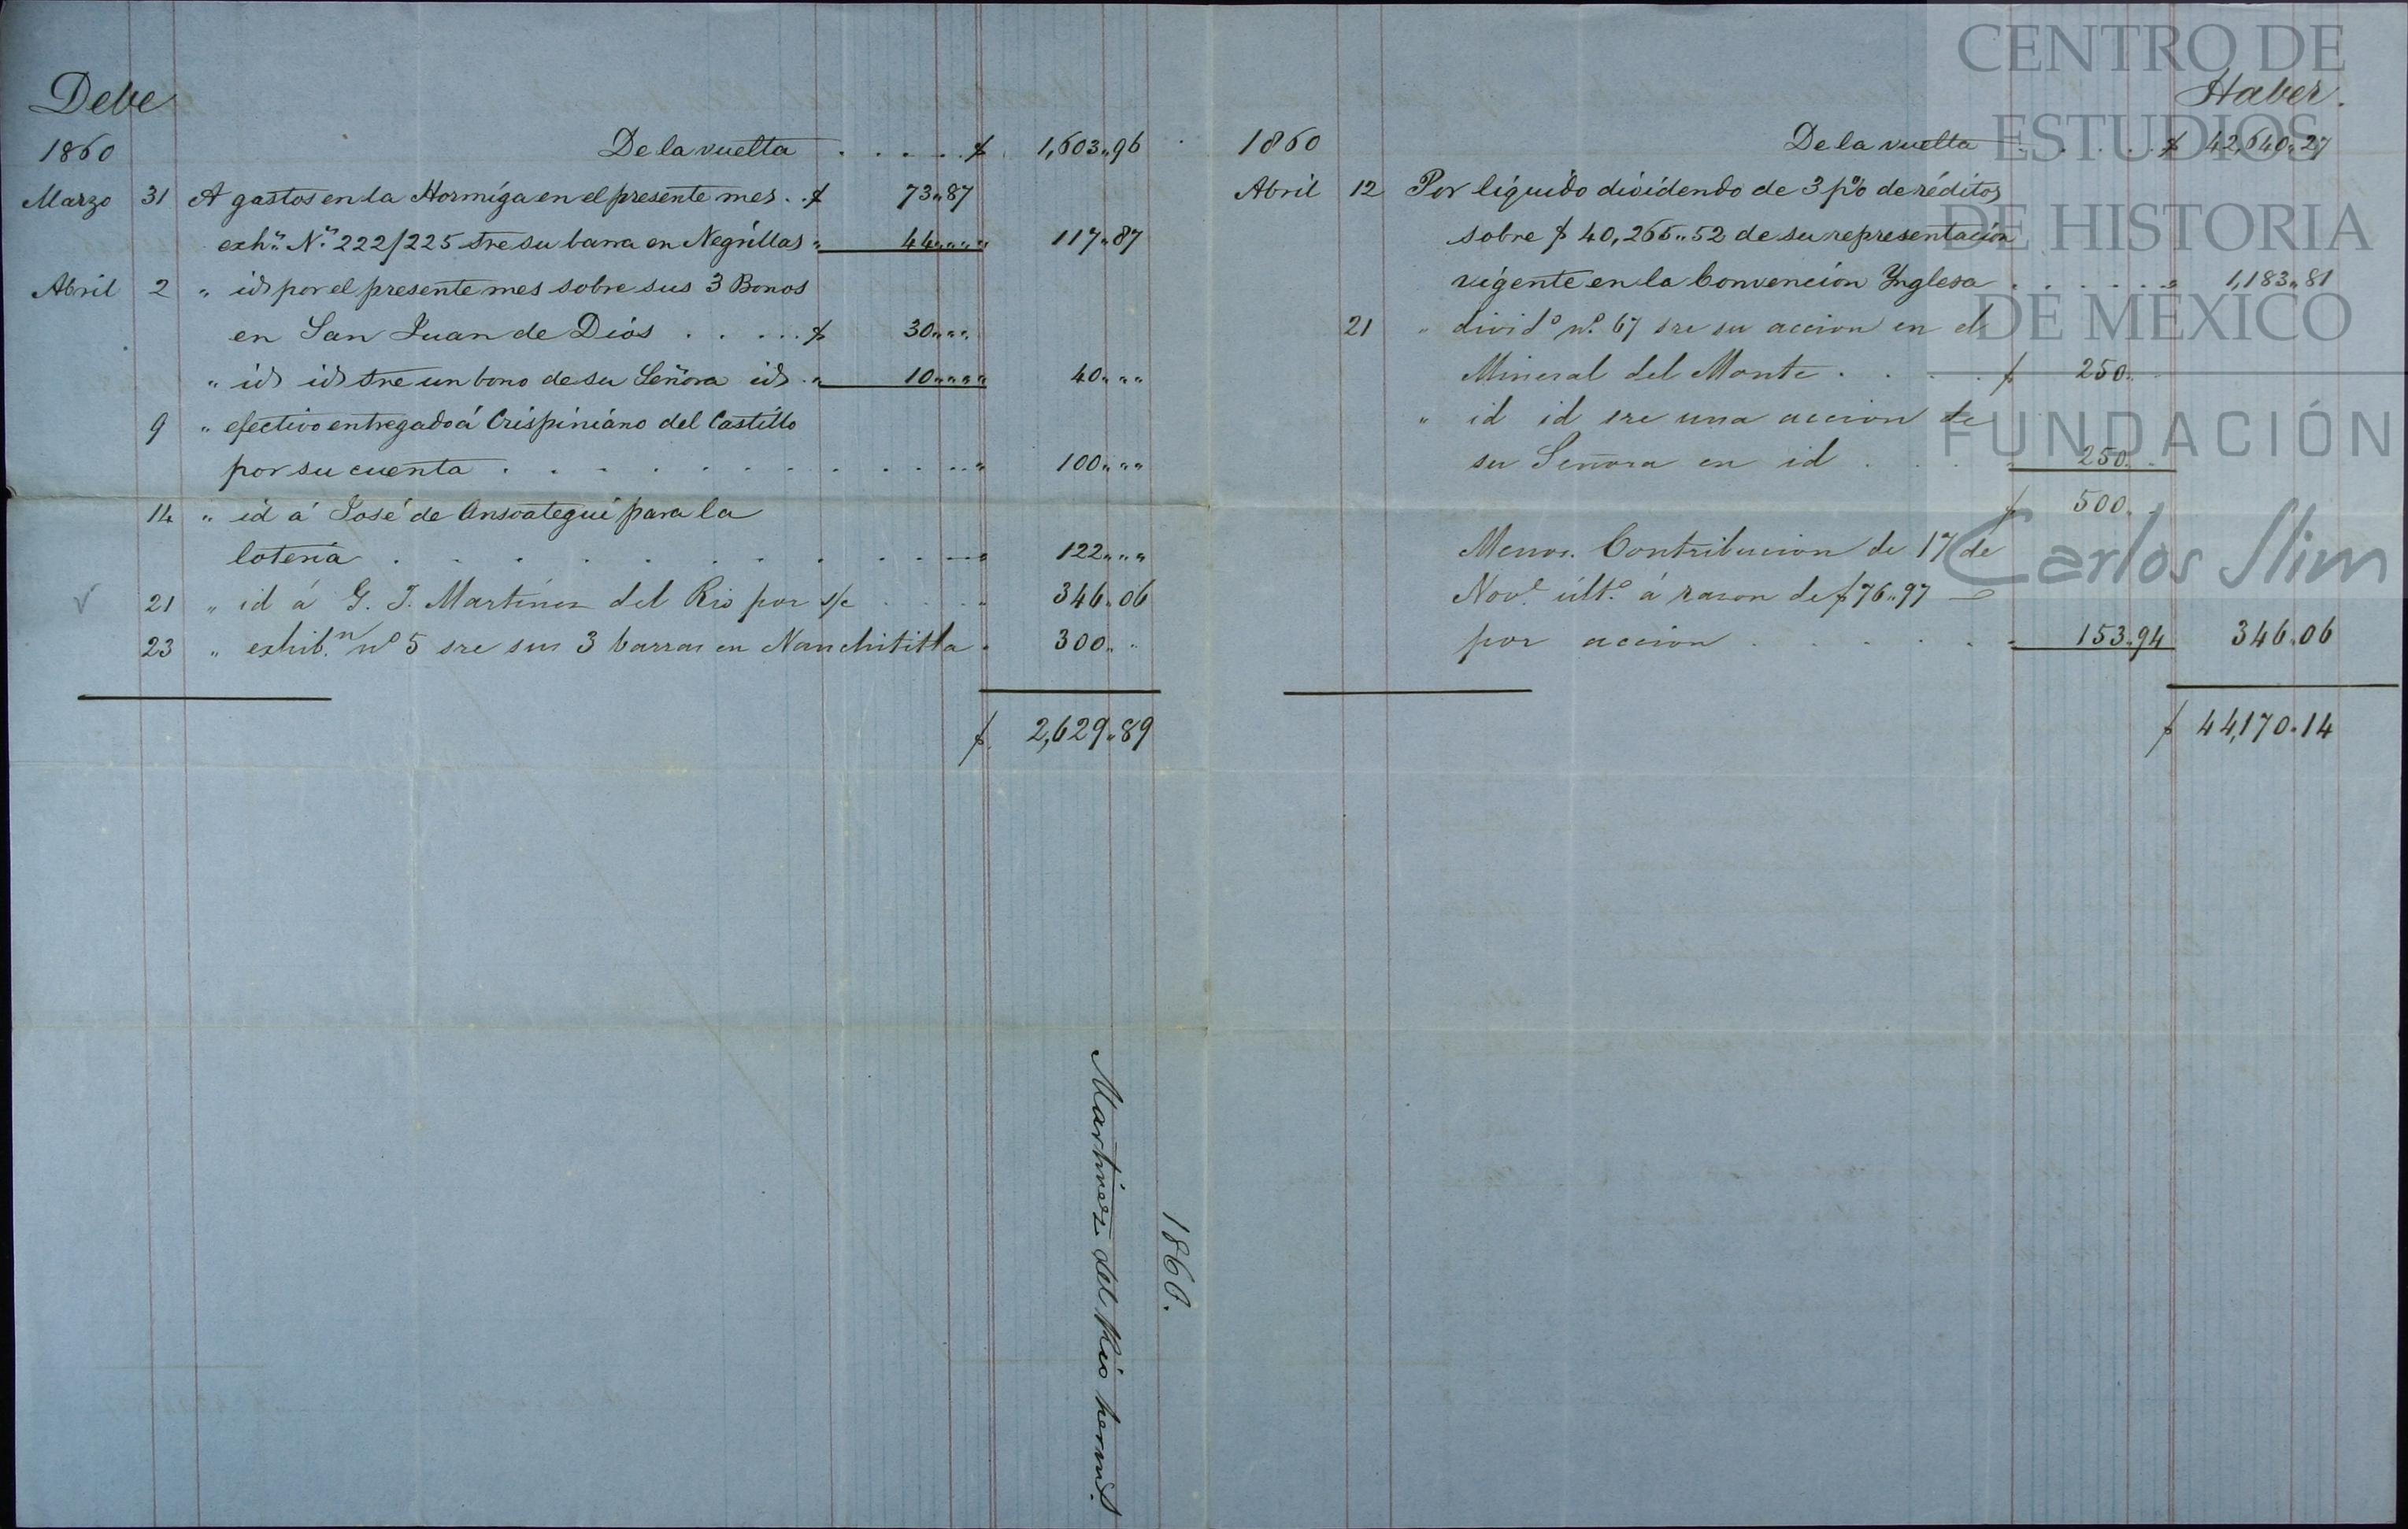 Debe
1860 De la vuelta . . . . . $ 1,603"96
Marzo 31 A gastos en la Hormíga en el presente mes . . $ 73"87
exhn. No. 222/225 sre su barra en Negríllas " 44"""" 117"87
Abril 2 " id por el presente mes sobre sus 3 Bonos
en San Juan de Dios . . . . . $ 30"""
" id id sre un bono de su Señora id . " 10"""" 40"""
9 " efectivo entregado á Críspíníano del Castíllo
por su cuenta . . . . . . . . . . " 100"""
14 " id á José de Ansoategui para la
lotería . . . . . . . . . . " 122"""
21 " id á G. J. Martinez del Rio por s/c . . . . " 346"06
23 " exhib.n no 5 sre sus 3 barras en Nanchititla " 300" "
$ 2,629"89
Haber.
1860 De la vuelta . . . . . $ 42,640"27
Abril 12 Por líquido dividendo de 3 p% de réditos
sobre $ 40,265"52 de su representacion
vigente en la Convencion Ynglesa . . . . . . " 1,183"81
21 " divido no. 67 sre su accion en el
Mineral del Monte . . . . $ 250"
" id id sre una accion de
su Señora en id . . . 250"
$ 500"
Menos. Contribucion de 17 de
Nove. últo. á razon de $76"97
por accion . . . . . " 153"94 346"06
$ 44,170"14
Martinez del Rio herms.
1860.
CENTRO DE
ESTUDIOS
DE HISTORIA
DE MÉXICO
FUNDACIÓN
Carlos Slim